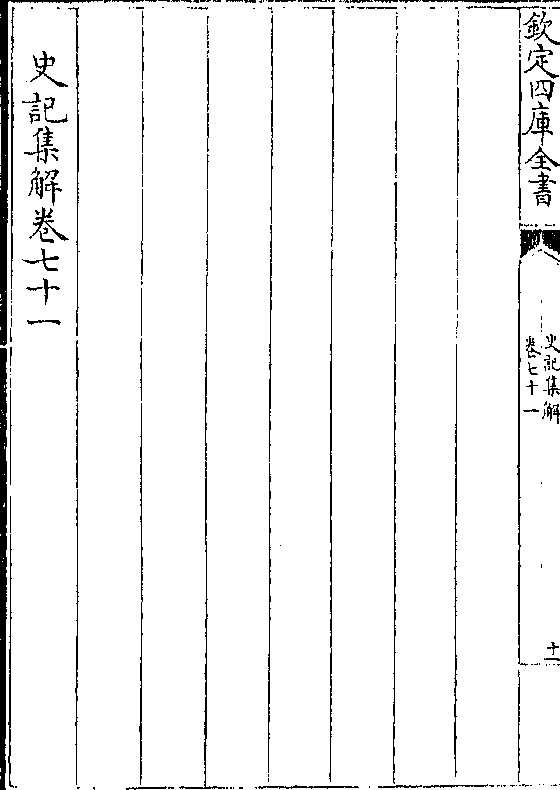 欽定四庫全書
史記集解
卷七十一
十一
史記集解卷七十一